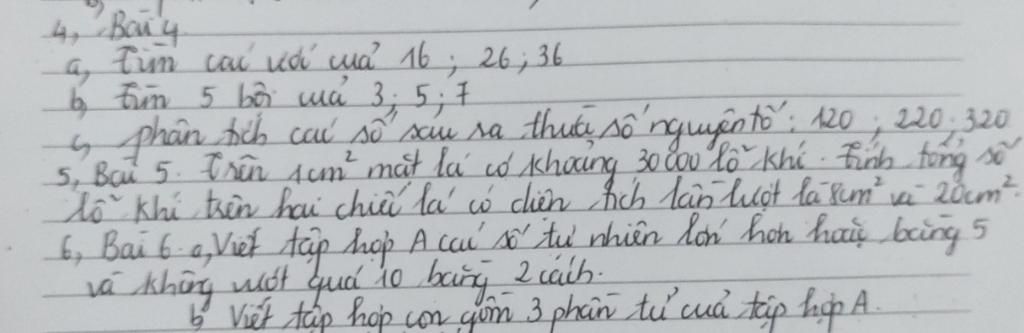 4, Bài 4
a, Tìm các ước của 16 ; 26 ; 36
b, Tìm 5 bội của 3 ; 5 ; 7
c, phân tích các số sau ra thừa số nguyên tố : 120 ; 220 ; 320
5, Bài 5. Trên 1cm² mặt lá có khoảng 30 000 lỗ khí. Tính tổng số
lỗ khí trên hai chiếc lá có diện tích lần lượt là 8cm² và 20cm².
6, Bài 6. a, Viết tập hợp A các số tự nhiên lớn hơn hoặc bằng 5
và không vượt quá 10 bằng 2 cách.
b, Viết tập hợp con gồm 3 phần tử của tập hợp A.